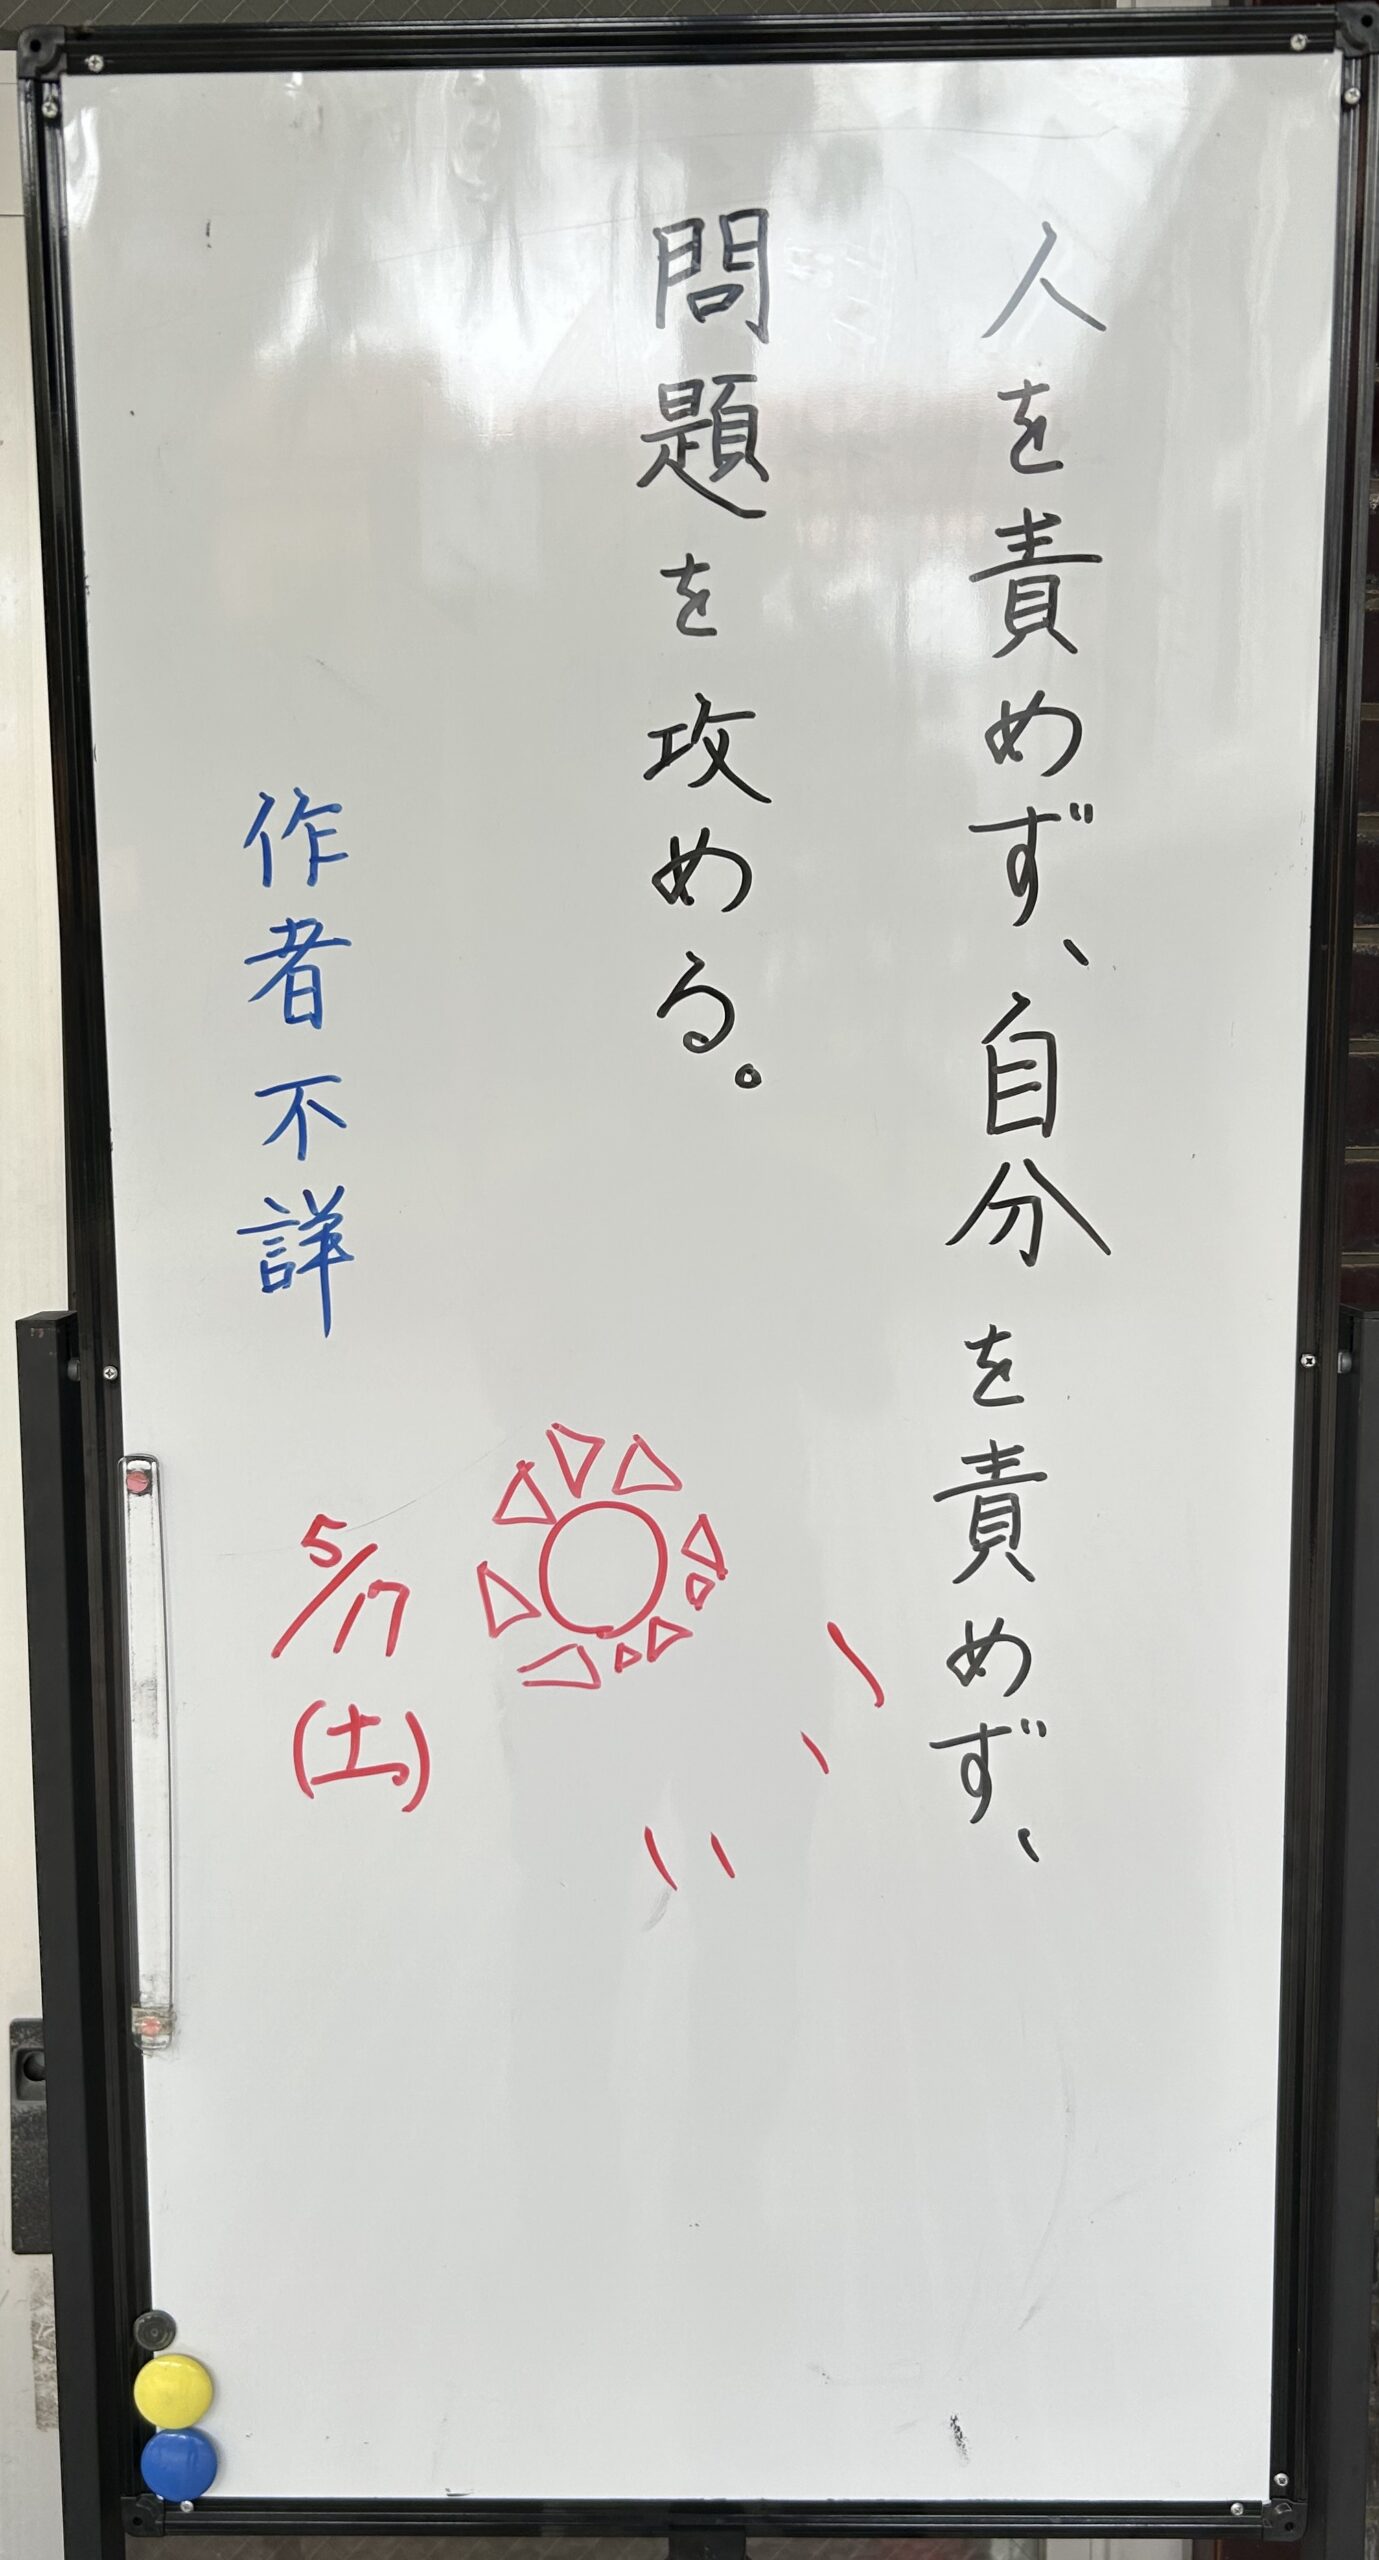 人を責めず、自分を責めず、
問題を攻める。
作者不詳
5/17
(土)